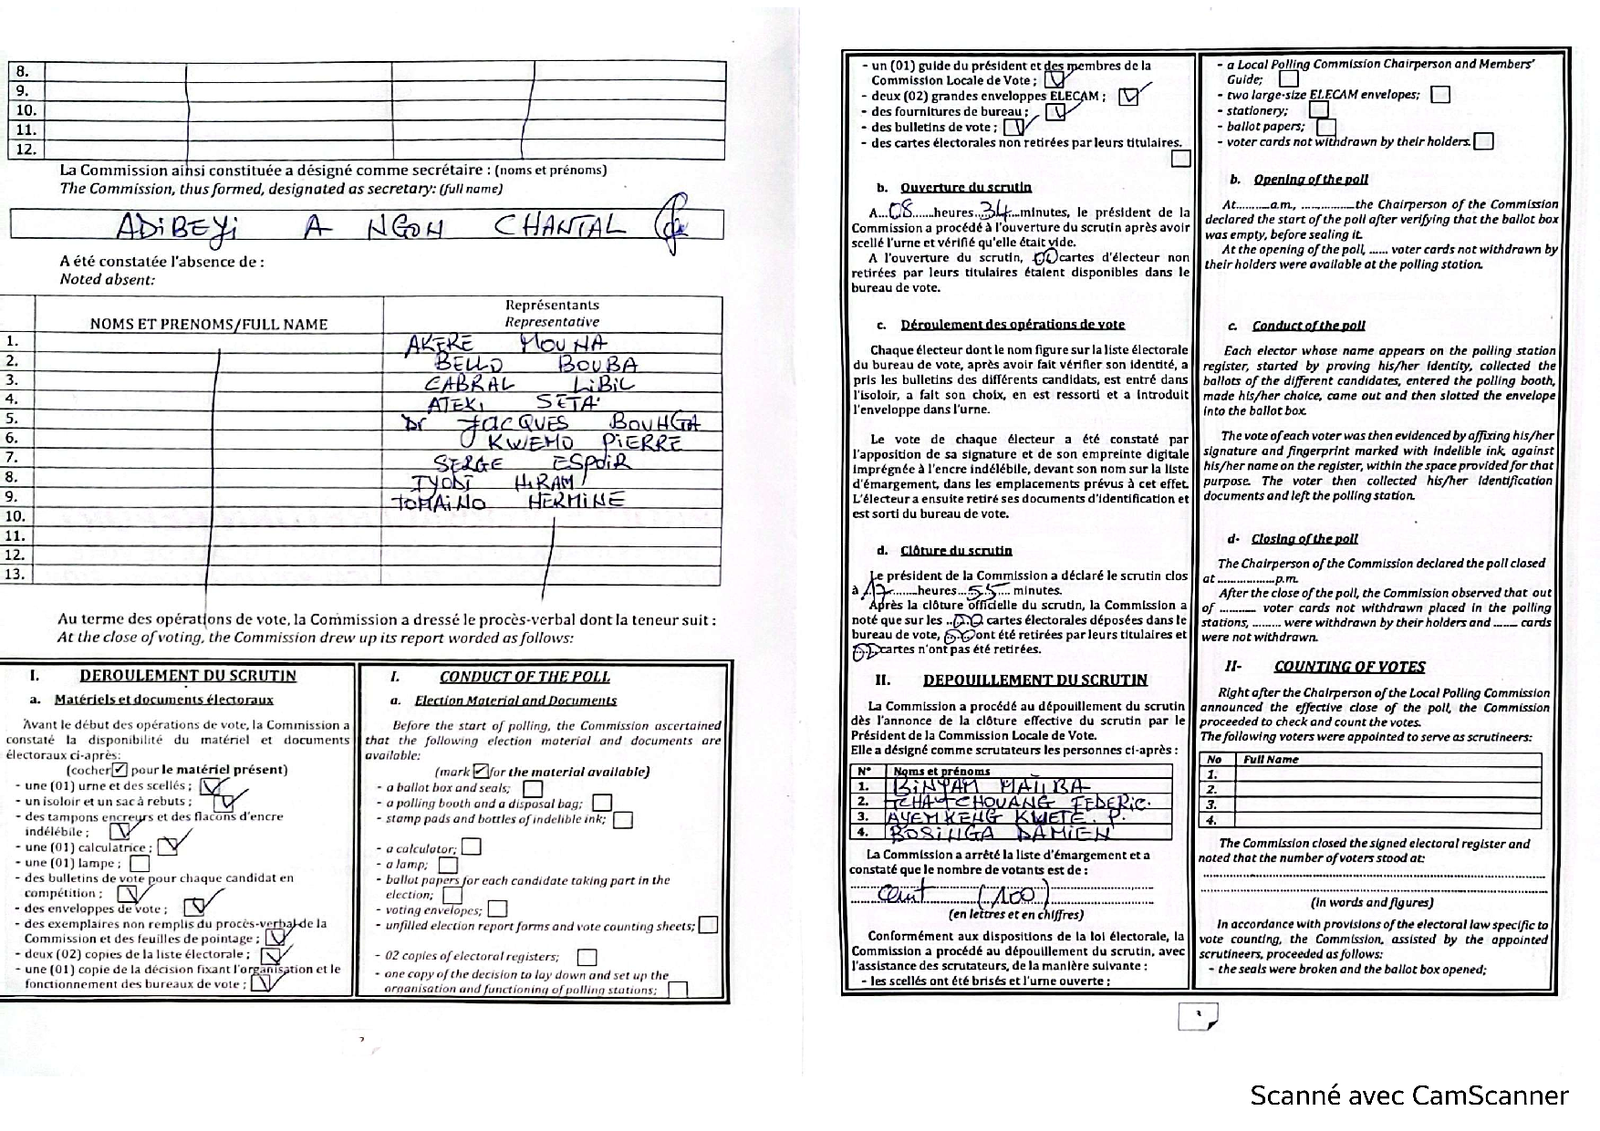 8.
9.
10.
11.
12.
La Commission ainsi constituée a désigné comme secrétaire : (noms et prénoms)
The Commission, thus formed, designated as secretary: (full name)
ADIBEYI A NGON CHANTAL
A été constatée l'absence de :
Noted absent:
NOMS ET PRENOMS/FULL NAME
Représentants
Representative
1. AKERE MOUNA
2. BELLO BOUBA
3. CABRAL LIBII
4. ATEKI SETA
5. Dr JACQUES BOUHGA
6. KWEMO PIERRE
7. SERGE ESPOIR
8. IYODI HIRAM
9. TOMAINO HERMINE
10.
11.
12.
13.
Au terme des opérations de vote, la Commission a dressé le procès-verbal dont la teneur suit :
At the close of voting, the Commission drew up its report worded as follows:
I. DEROULEMENT DU SCRUTIN
a. Matériels et documents électoraux
Avant le début des opérations de vote, la Commission a
constaté la disponibilité du matériel et documents
électoraux ci-après:
(cocher ✓ pour le matériel présent)
- une (01) urne et des scellés ;
- un isoloir et un sac à rebuts ;
- des tampons encreurs et des flacons d'encre
indélébile ;
- une (01) calculatrice ;
- une (01) lampe ;
- des bulletins de vote pour chaque candidat en
compétition ;
- des enveloppes de vote ;
- des exemplaires non remplis du procès-verbal de la
Commission et des feuilles de pointage ;
- deux (02) copies de la liste électorale ;
- une (01) copie de la décision fixant l'organisation et le
fonctionnement des bureaux de vote ;
I. CONDUCT OF THE POLL
a. Election Material and Documents
Before the start of polling, the Commission ascertained
that the following election material and documents are
available:
(mark ✓ for the material available)
- a ballot box and seals;
- a polling booth and a disposal bag;
- stamp pads and bottles of indelible ink;
- a calculator;
- a lamp;
- ballot papers for each candidate taking part in the
election;
- voting envelopes;
- unfilled election report forms and vote counting sheets;
- 02 copies of electoral registers;
- one copy of the decision to lay down and set up the
organisation and functioning of polling stations;
2
- un (01) guide du président et des membres de la
Commission Locale de Vote ;
- deux (02) grandes enveloppes ELECAM ;
- des fournitures de bureau ;
- des bulletins de vote ;
- des cartes électorales non retirées par leurs titulaires.
b. Ouverture du scrutin
A...08......heures...34...minutes, le président de la
Commission a procédé à l'ouverture du scrutin après avoir
scellé l'urne et vérifié qu'elle était vide.
A l'ouverture du scrutin, 00 cartes d'électeur non
retirées par leurs titulaires étaient disponibles dans le
bureau de vote.
c. Déroulement des opérations de vote
Chaque électeur dont le nom figure sur la liste électorale
du bureau de vote, après avoir fait vérifier son identité, a
pris les bulletins des différents candidats, est entré dans
l'isoloir, a fait son choix, en est ressorti et a introduit
l'enveloppe dans l'urne.
Le vote de chaque électeur a été constaté par
l'apposition de sa signature et de son empreinte digitale
imprégnée à l'encre indélébile, devant son nom sur la liste
d'émargement, dans les emplacements prévus à cet effet.
L'électeur a ensuite retiré ses documents d'identification et
est sorti du bureau de vote.
d. Clôture du scrutin
Le président de la Commission a déclaré le scrutin clos
à 17........heures...55... minutes.
Après la clôture officielle du scrutin, la Commission a
noté que sur les ..00 cartes électorales déposées dans le
bureau de vote, 00 ont été retirées par leurs titulaires et
00 cartes n'ont pas été retirées.
II. DEPOUILLEMENT DU SCRUTIN
La Commission a procédé au dépouillement du scrutin
dès l'annonce de la clôture effective du scrutin par le
Président de la Commission Locale de Vote.
Elle a désigné comme scrutateurs les personnes ci-après :
N° Noms et prénoms
1. BINYAM MAIIBA
2. TCHATCHOUANG FEDERIC.
3. AYEMKENG KWETE. P.
4. BOSINGA DAMIEN
La Commission a arrêté la liste d'émargement et a
constaté que le nombre de votants est de :
Cent (100)
(en lettres et en chiffres)
Conformément aux dispositions de la loi électorale, la
Commission a procédé au dépouillement du scrutin, avec
l'assistance des scrutateurs, de la manière suivante :
- les scellés ont été brisés et l'urne ouverte ;
- a Local Polling Commission Chairperson and Members'
Guide;
- two large-size ELECAM envelopes;
- stationery;
- ballot papers;
- voter cards not withdrawn by their holders.
b. Opening of the poll
At..........a.m., ...............the Chairperson of the Commission
declared the start of the poll after verifying that the ballot box
was empty, before sealing it.
At the opening of the poll, ...... voter cards not withdrawn by
their holders were available at the polling station.
c. Conduct of the poll
Each elector whose name appears on the polling station
register, started by proving his/her identity, collected the
ballots of the different candidates, entered the polling booth,
made his/her choice, came out and then slotted the envelope
into the ballot box.
The vote of each voter was then evidenced by affixing his/her
signature and fingerprint marked with indelible ink, against
his/her name on the register, within the space provided for that
purpose. The voter then collected his/her identification
documents and left the polling station.
d- Closing of the poll
The Chairperson of the Commission declared the poll closed
at ................p.m.
After the close of the poll, the Commission observed that out
of .......... voter cards not withdrawn placed in the polling
stations, ......... were withdrawn by their holders and ....... cards
were not withdrawn.
II- COUNTING OF VOTES
Right after the Chairperson of the Local Polling Commission
announced the effective close of the poll, the Commission
proceeded to check and count the votes.
The following voters were appointed to serve as scrutineers:
No Full Name
1.
2.
3.
4.
The Commission closed the signed electoral register and
noted that the number of voters stood at:
(In words and figures)
In accordance with provisions of the electoral law specific to
vote counting, the Commission, assisted by the appointed
scrutineers, proceeded as follows:
- the seals were broken and the ballot box opened;
3
Scanné avec CamScanner